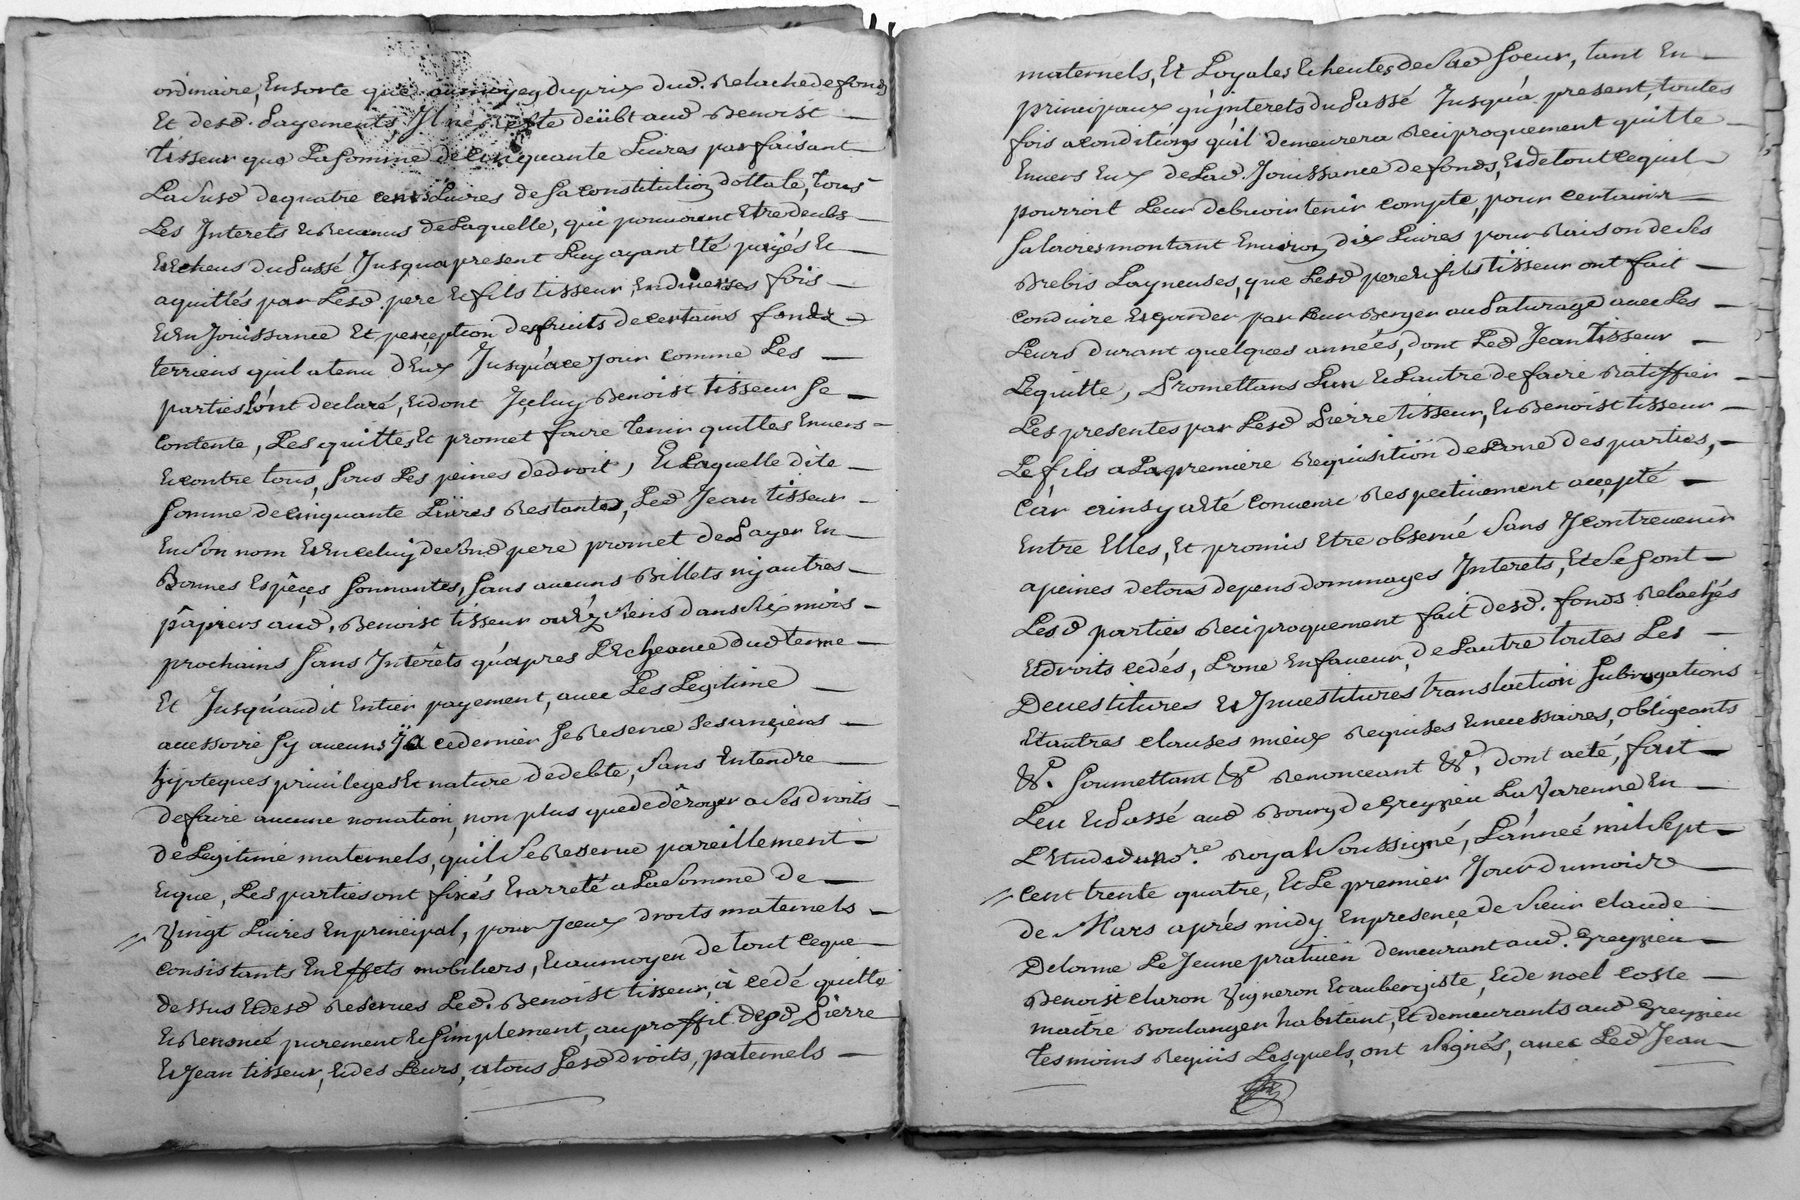 ordinaire, Ensorte que aumoyen duprix dud. Relachedefonds
Et desd. Payements, Il ne reste deübt aud Benoist
tisseur que La Somme de Cinquante Livres parfaisant
La Susd dequatre cent Livres de Sa Constitution dottale, tous
Les Interets & Revenus deLaquelle, qui pouvoient Etre deubs
& Echeus du Passé Jusqua present Luy ayant Eté payés &
aquittés par Lesd. pere & fils tisseur, En diverses fois
& En Jouissance Et perception desfruits de certains fonds
terriens quil a tenu d'Eux Jusqu'a ce Jour comme Les
parties L'ont declaré, & dont Iceluy Benoist tisseur Se
Contente, Les quitte, Et promet faire tenir quittes Envers
& contre tous, Sous Les peines dedroit, & Laquelle dite
Somme decinquante Livres Restantes, Led Jean tisseur
En Son nom & En celuy de Sond pere promet de Payer En
Bonnes Espêçes Sonnantes, Sans aucuns Billets ny autres
papiers aud. Benoist tisseur dans Six mois
prochains Sans Interêts qu'apres L'Echeance dud terme
Et Jusqu'audit Entier payement, avec Les Legitime
accessoire Sy aucuns Ya ce dernier Se Reserve Ses anciens
hypoteques privileges Et nature de debte, Sans Entendre
defaire aucune novation, non plus que de dêroger a Ses droits
de Legitime maternels, qu'il Se Reserve pareillement
& que, Les parties ont fixés & arreté a La Somme de
Vingt Livres En principal, pour Iceux droits maternels
consistants En Effets mobiliers, & au moyen de tout ceque
dessus & desd Reserves Led. Benoist tisseur, à cedé quitté
& Renoncé purement & Simplement, au proffit desd Pierre
& Jean tisseur, & des Leurs, a tous Sesd droits, paternels
maternels, Et Loyales Echeutes de Sad Soeur, tant En
principaux qu'interets du Passé Jusqu'a present, toutes
fois a conditions qu'il demeurera Reciproquement quitte
Envers Eux de Lad. Jouissance de fonds, & de tout ce quil
pourroit Leur debvoir tenir compte, pour certains
Salaires montant Environ dix Livres pour Raison de Ses
Brebis Layneuses, que Lesd pere & fils tisseur ont fait
Conduire & garder par Leur Berger au Paturage avec Les
Leurs durant quelques années, dont Led Jean tisseur
Lequitte, Promettans L'un & L'autre de faire Ratiffier
Les presentes par Lesd Pierre tisseur, & Benoist tisseur
Le fils a La premiere Requisition de L'one des parties,
Car ainsy a Eté convenu Respectivement accepté
Entre Elles, Et promis Etre observé Sans Y contrevenir
a peines de tous depens dommages Interets, Et Se Sont
Lesd parties Reciproquement fait desd. fonds Relachés
Et droits cedés, L'one En faveur, de L'autre toutes Les
Devestitures & Investitures translaction Subrogations
Et autres clauses mieux Requises & necessaires, obligeants
&ª. Soumettant &ª Renonceant &ª, dont acté, fait
Leu & Passé aud Bourg de Grezieu La Varenne En
L'Etude du nore. Royal Soussigné, L'année mil Sept
Cent trente quatre, Et Le premier Jour du mois
de Mars aprés midy En presençe de Sieur claude
Delorme Le Jeune praticien demeurant aud. Grezieu
Benoist claron Vigneron Et aubergiste, & de noel Coste
maitre Boulanger habitant, Et demeurants aud Grezieu
tesmoins Requis Lesquels, ont Signés, avec Led Jean